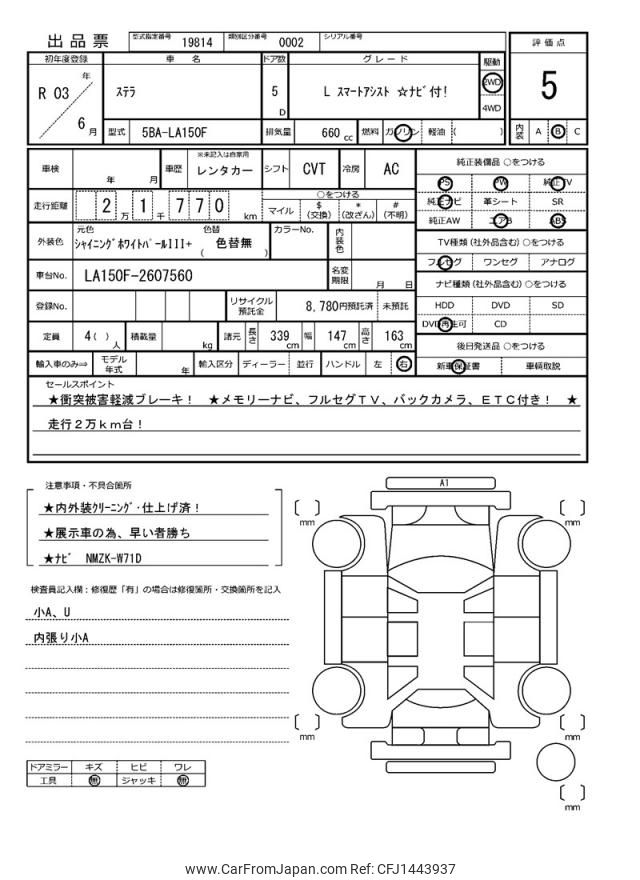 出品票
型式指定番号 19814 類別区分番号 0002 シリアル番号
評価点
5
初年度登録 車名 ドア数 グレード 駆動
R 03 年 6 月
ステラ
5 D
L スマートアシスト ☆ナビ付!
2WD
4WD
型式 5BA-LA150F 排気量 660 cc 燃料 ガソリン 軽油 ( )
内装 A B C
車検 年 月 車歴 ※未記入は自家用 レンタカー シフト CVT 冷房 AC
走行距離 2 万 1 千 7 7 0 km
○をつける
マイル $(交換) *(改ざん) #(不明)
外装色 元色 シャイニングホワイトパールIII+ 色替 ( 色替無 ) カラーNo. 内装色
車台No. LA150F-2607560 名変期限 月 日
登録No. リサイクル預託金 8,780円預託済 未預託
定員 4( )人 積載量 kg 諸元 長さ 339 cm 幅 147 cm 高さ 163 cm
輸入車のみ⇒ モデル年式 年 輸入区分 ディーラー 並行 ハンドル 左 右
純正装備品 ○をつける
PS PW 純正TV
純正ナビ 革シート SR
純正AW エアB ABS
TV種類(社外品含む)○をつける
フルセグ ワンセグ アナログ
ナビ種類(社外品含む)○をつける
HDD DVD SD
DVD再生可 CD
後日発送品 ○をつける
新車保証書 車輌取説
セールスポイント
★衝突被害軽減ブレーキ! ★メモリーナビ、フルセグTV、バックカメラ、ETC付き! ★
走行2万km台!
注意事項・不具合箇所
★内外装クリーニング・仕上げ済!
★展示車の為、早い者勝ち
★ナビ NMZK-W71D
検査員記入欄:修復歴「有」の場合は修復箇所・交換箇所を記入
小A、U
内張り小A
A1
mm
mm
mm
mm
mm
ドアミラー キズ ヒビ ワレ
工具 無 ジャッキ 無
www.CarFromJapan.com Ref: CFJ1443937